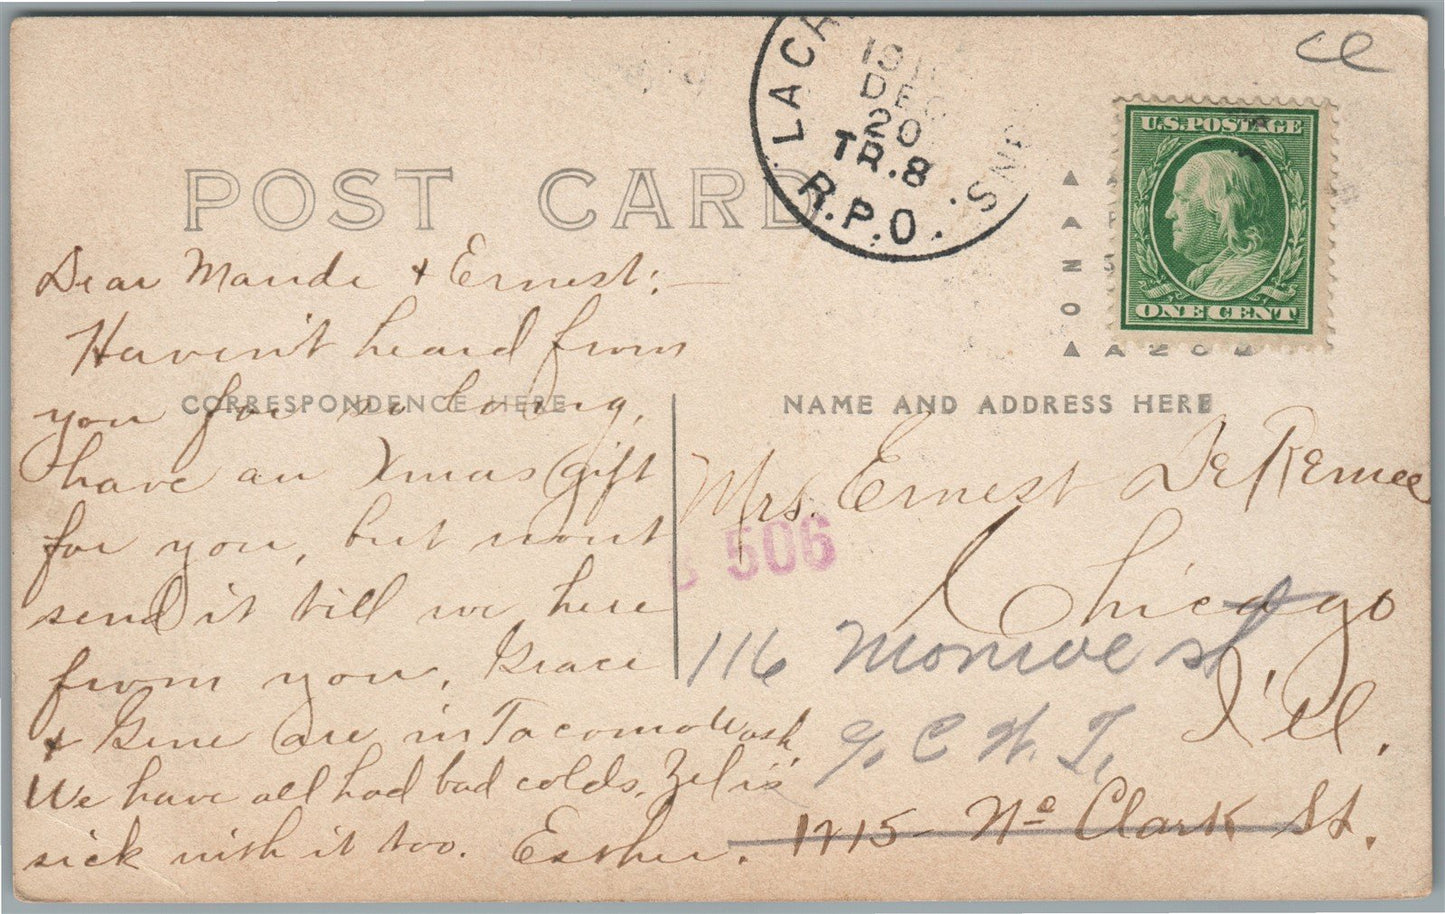 POST CARD
LACR
1910
DEC
20
TR.8
R.P.O.
U.S.POSTAGE
ONE CENT
Dear Maude & Ernest:—
Haven't heard from
you for so long,
have an Xmas gift
for you, but wont
send it till we here
from you, Grace
& Gene are in Tacoma Wash
We have all had bad colds.
sick with it too. Esther.
CORRESPONDENCE HERE
NAME AND ADDRESS HERE
Mrs. Ernest DeRemee
506
Chicago
116 Monroe st
Ill.
c/o C. W. T,
1715 No Clark St.